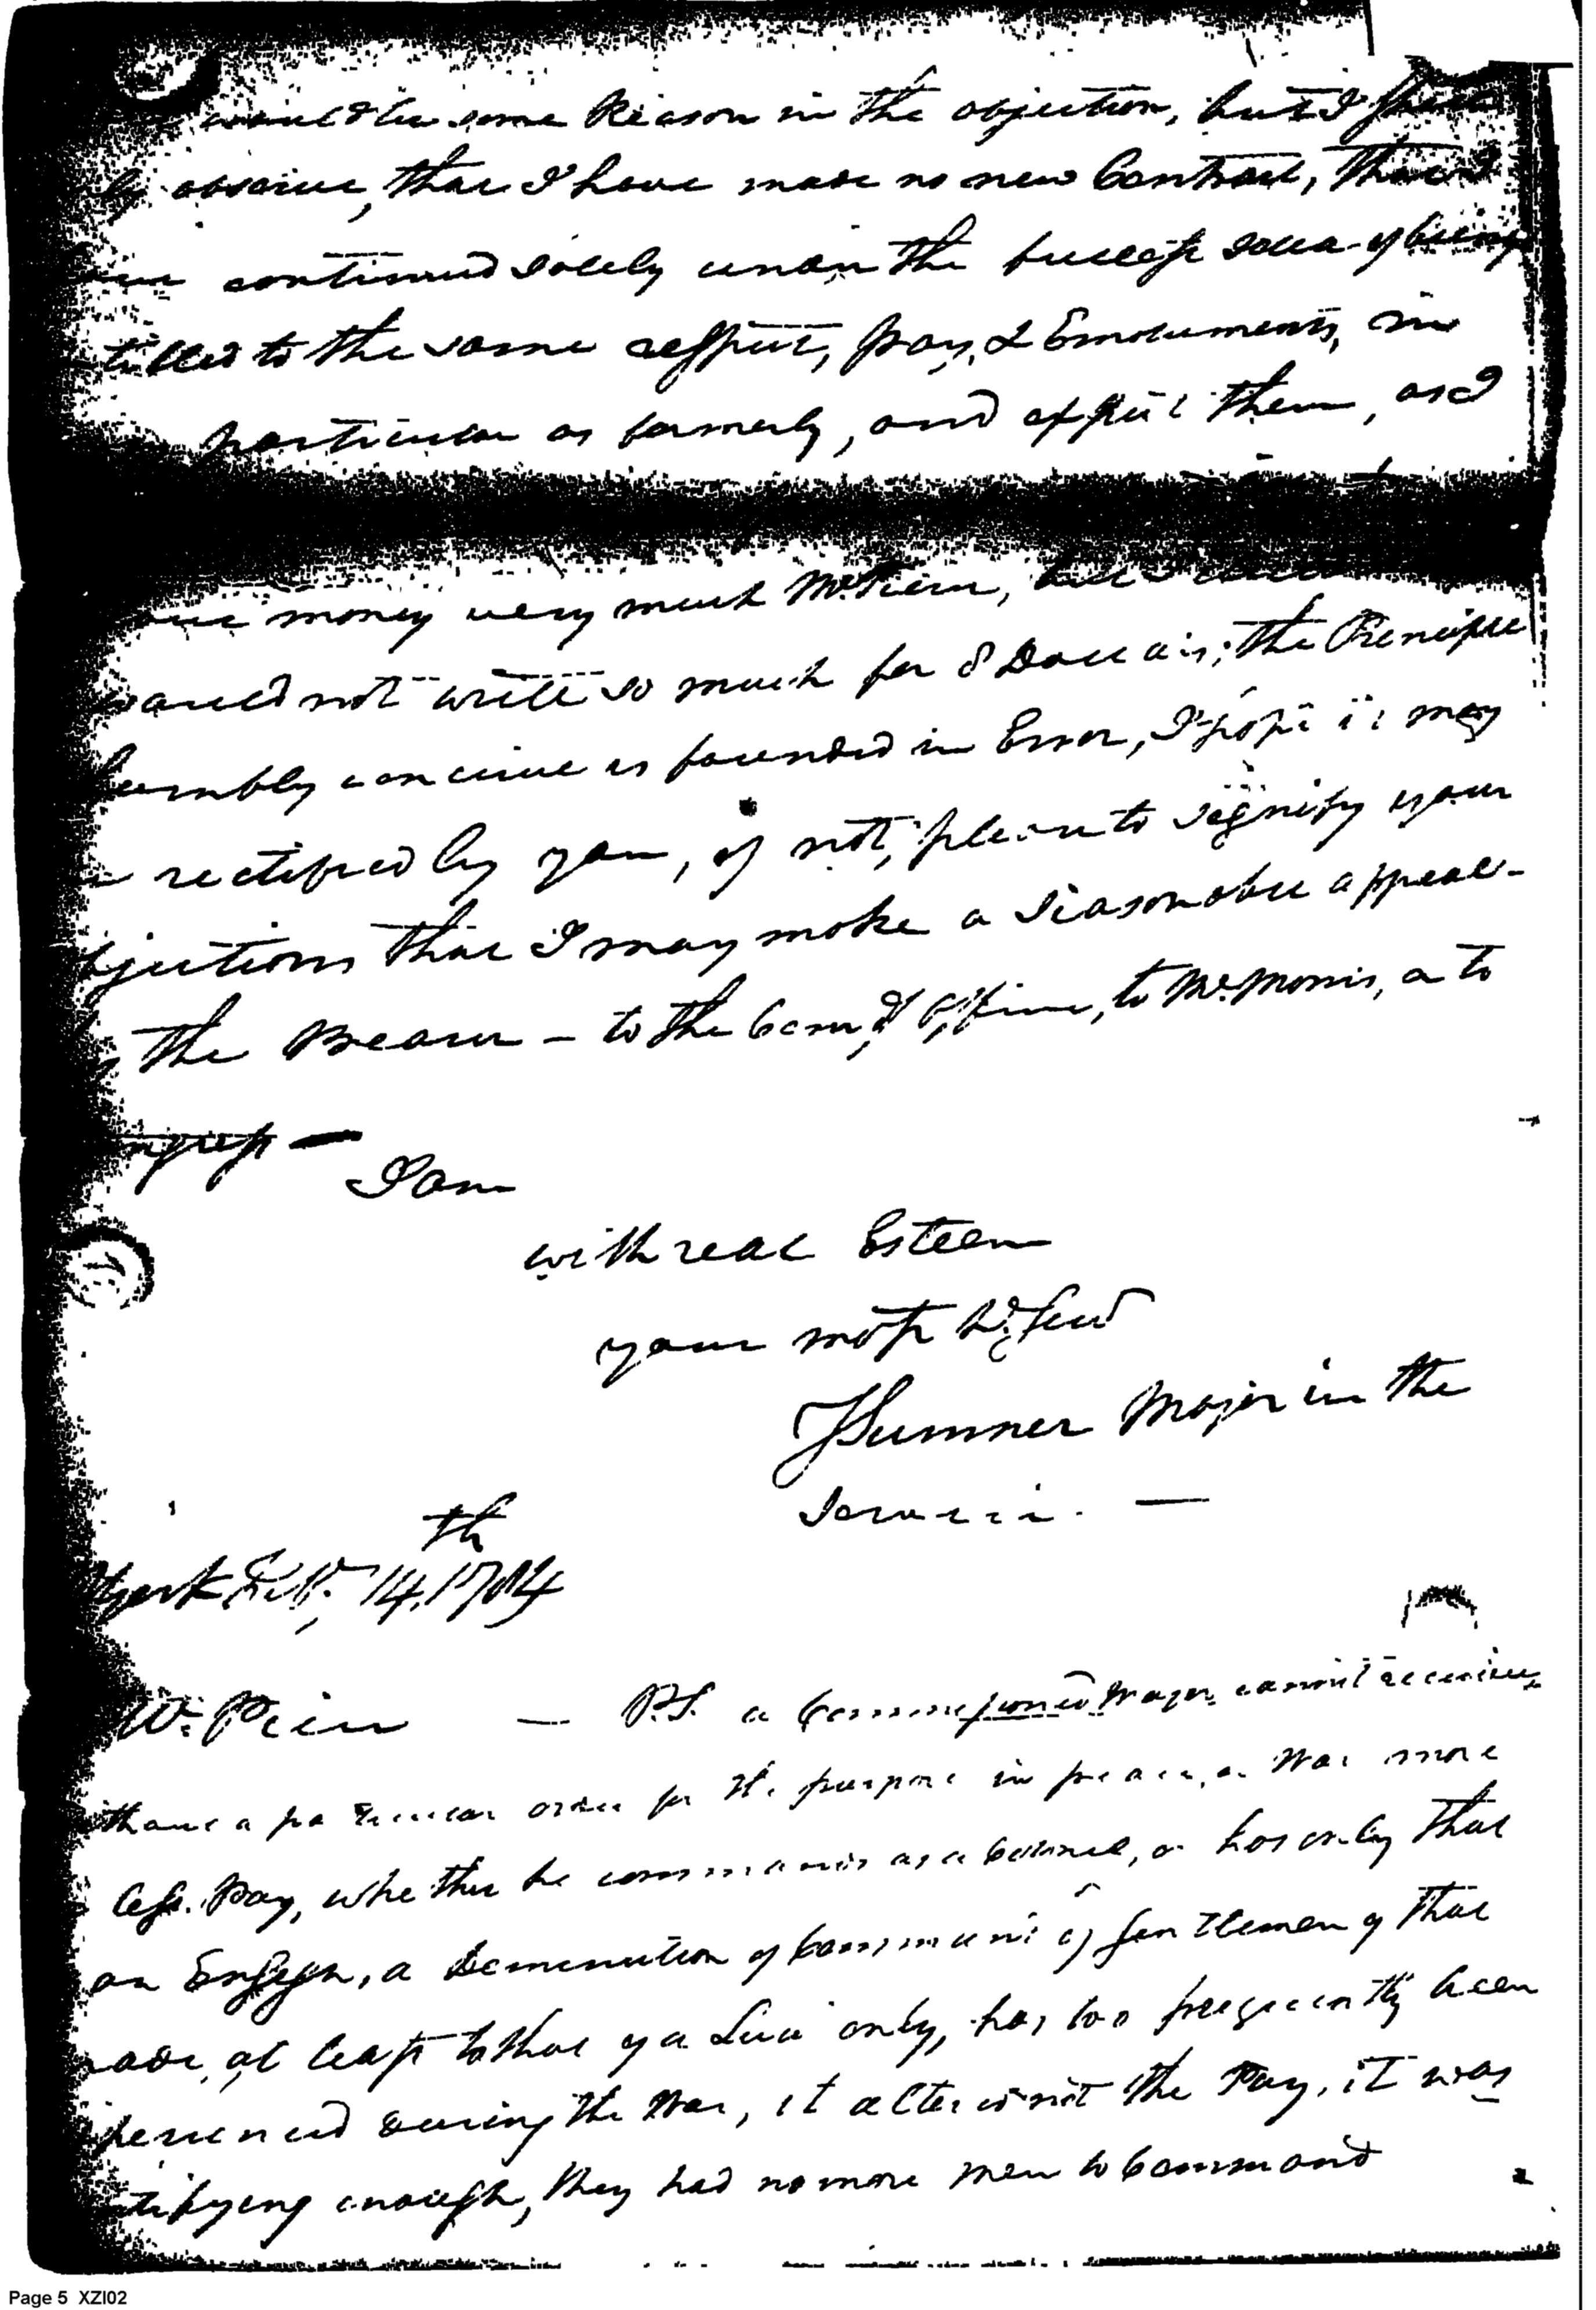 would be some Reason in the objection, but I
observe, that I have made no new Contract, that I
continued solely upon the fullest Idea of being
titled to the same respect, pay, & Emoluments, in
particular as formerly, and expect them, as I
money very much Mr. Pierce, but I
would not write so much for 8 Dollars; the Principle
humbly conceive is founded in Error, I hope it may
rectified by you, if not, please to signify your
bjections that I may make a reasonable appeal-
the Bearer – to the Comg. Officer, to Mr. Morris, or to
ngress —
I am
with real Esteem
your most H. Servt
J Sumner Major in the
Service. —
York Feby. 14th 1784
Mr. Pierce — P.S. a Commissioned Major cannot receive,
thout a particular order for the purpose in peace, or War more
less. Pay, whether he commands as a Colonel, or has only that
an Ensign, a Deminution of Command of Gentlemen of that
rade, at least to that of a Lieut only, has too frequently been
perienced during the War, it altered not the Pay, it was
tifying enough, they had no more men to Command